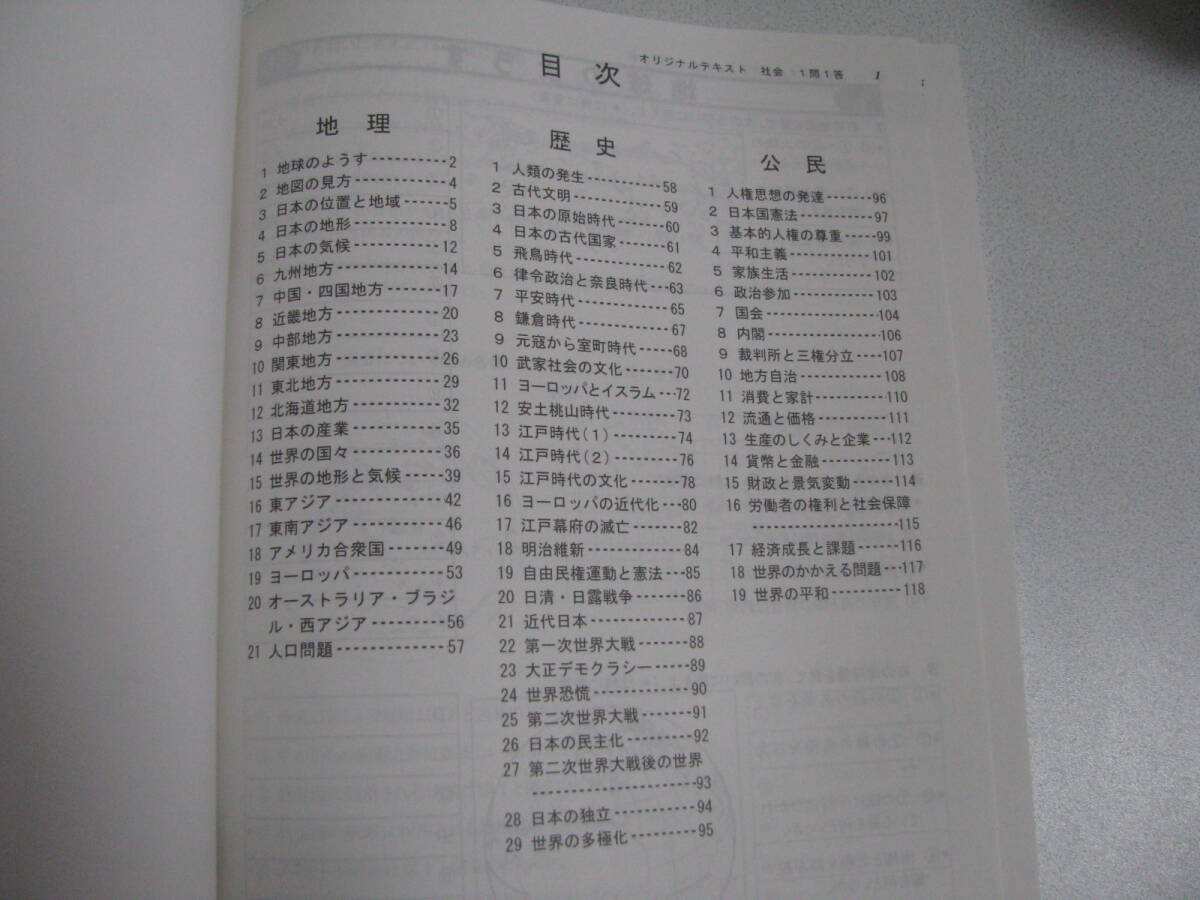 オリジナルテキスト 社会 1問1答 1
目次
地理
1 地球のようす----------2
2 地図の見方----------4
3 日本の位置と地域-----5
4 日本の地形----------8
5 日本の気候----------12
6 九州地方----------14
7 中国・四国地方-------17
8 近畿地方----------20
9 中部地方----------23
10 関東地方----------26
11 東北地方----------29
12 北海道地方---------32
13 日本の産業---------35
14 世界の国々---------36
15 世界の地形と気候-----39
16 東アジア----------42
17 東南アジア---------46
18 アメリカ合衆国-------49
19 ヨーロッパ----------53
20 オーストラリア・ブラジ
ル・西アジア---------56
21 人口問題------------57
歴史
1 人類の発生----------58
2 古代文明-----------59
3 日本の原始時代------60
4 日本の古代国家------61
5 飛鳥時代----------62
6 律令政治と奈良時代---63
7 平安時代----------65
8 鎌倉時代----------67
9 元寇から室町時代-----68
10 武家社会の文化------70
11 ヨーロッパとイスラム---72
12 安土桃山時代--------73
13 江戸時代(1)--------74
14 江戸時代(2)--------76
15 江戸時代の文化------78
16 ヨーロッパの近代化---80
17 江戸幕府の滅亡------82
18 明治維新-----------84
19 自由民権運動と憲法---85
20 日清・日露戦争------86
21 近代日本-----------87
22 第一次世界大戦------88
23 大正デモクラシー-----89
24 世界恐慌-----------90
25 第二次世界大戦------91
26 日本の民主化--------92
27 第二次世界大戦後の世界
--------------------93
28 日本の独立----------94
29 世界の多極化--------95
公民
1 人権思想の発達-------96
2 日本国憲法---------97
3 基本的人権の尊重-----99
4 平和主義----------101
5 家族生活----------102
6 政治参加----------103
7 国会-------------104
8 内閣-------------106
9 裁判所と三権分立----107
10 地方自治----------108
11 消費と家計---------110
12 流通と価格---------111
13 生産のしくみと企業---112
14 貨幣と金融---------113
15 財政と景気変動------114
16 労働者の権利と社会保障
--------------------115
17 経済成長と課題------116
18 世界のかかえる問題---117
19 世界の平和----------118